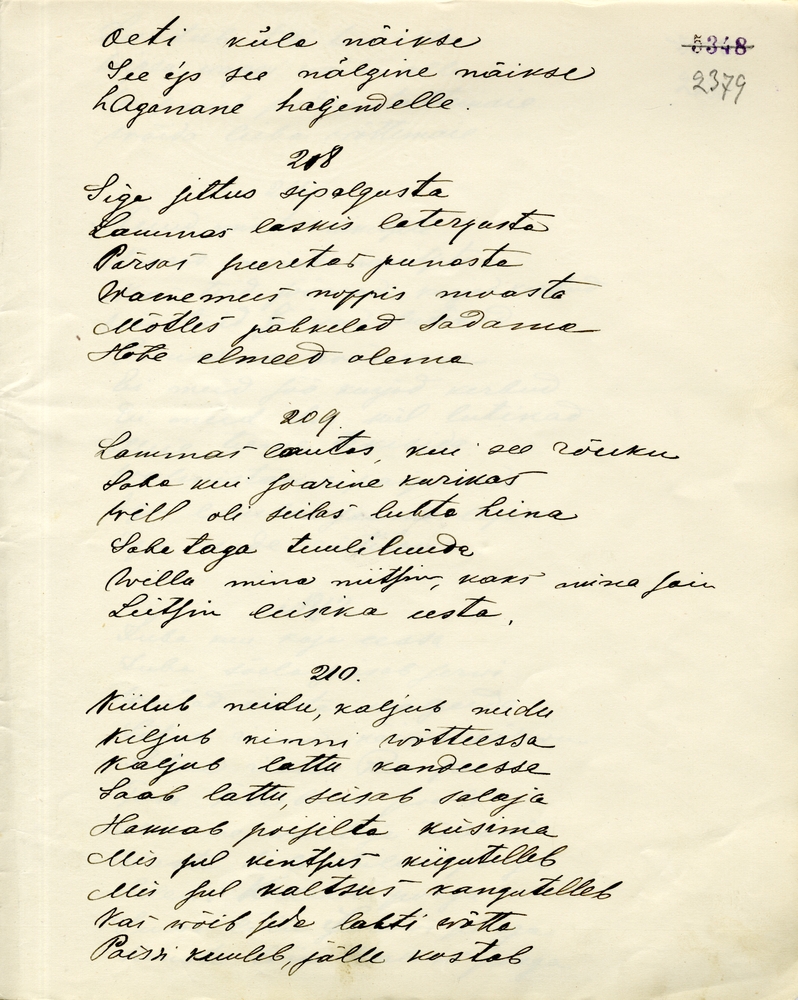 5348
2379
Oeti küla näikse
See ejs see nälgine näikse
hAganane haljendelle.
208
Siga sittus sipalgusta
Lammas laskis laterjusta
Pörsas peeretas punasta
Wanemees noppis moasta
Mõtles pähkelad sadama
Hobe elmeed olema
209.
Lammas lautas, kui see rõuku
Saba kui soarine kurikas
Will oli seilas luhta heina
Saba taga tuuliluuda
Willa mina niitsin, kaks mina sain
Leitsin leisika uesta.
210.
Kiilub neidu, kaljub neidu
Kiljub kinni wõtteessa
Kaljub lattu kandeesse
Saab lattu, seisab salaja
Hakkab poisilta küsima
Mis sul kintsus kiigutelleb
Mis sul kaltsus kangutelleb
Kas wõib seda lahti wõtta
Poissi kuuleb, jälle kostab